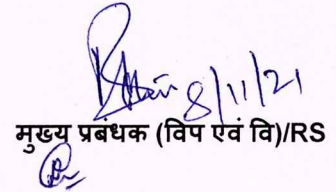 8/11/21
मुख्य प्रबंधक (विप एवं वि)/RS